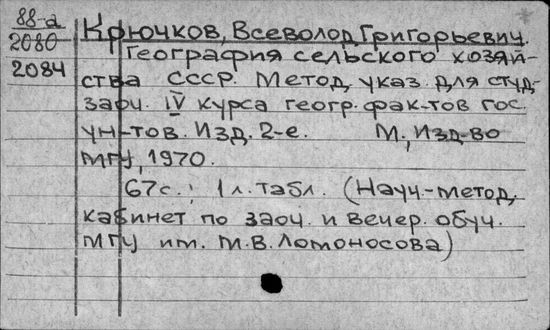 88-а
2080
2084
Крючков, Всеволод Григорьевич.
География сельского хозяй-
ства СССР. Метод. указ. для студ.
заоч. IV курса геогр. фак-тов гос.
ун-тов. Изд. 2-е. М., Изд-во
МГУ, 1970.
67с.; 1л. табл. (Науч.-метод.
кабинет по заоч. и вечер. обуч.
МГУ им. М.В. Ломоносова)